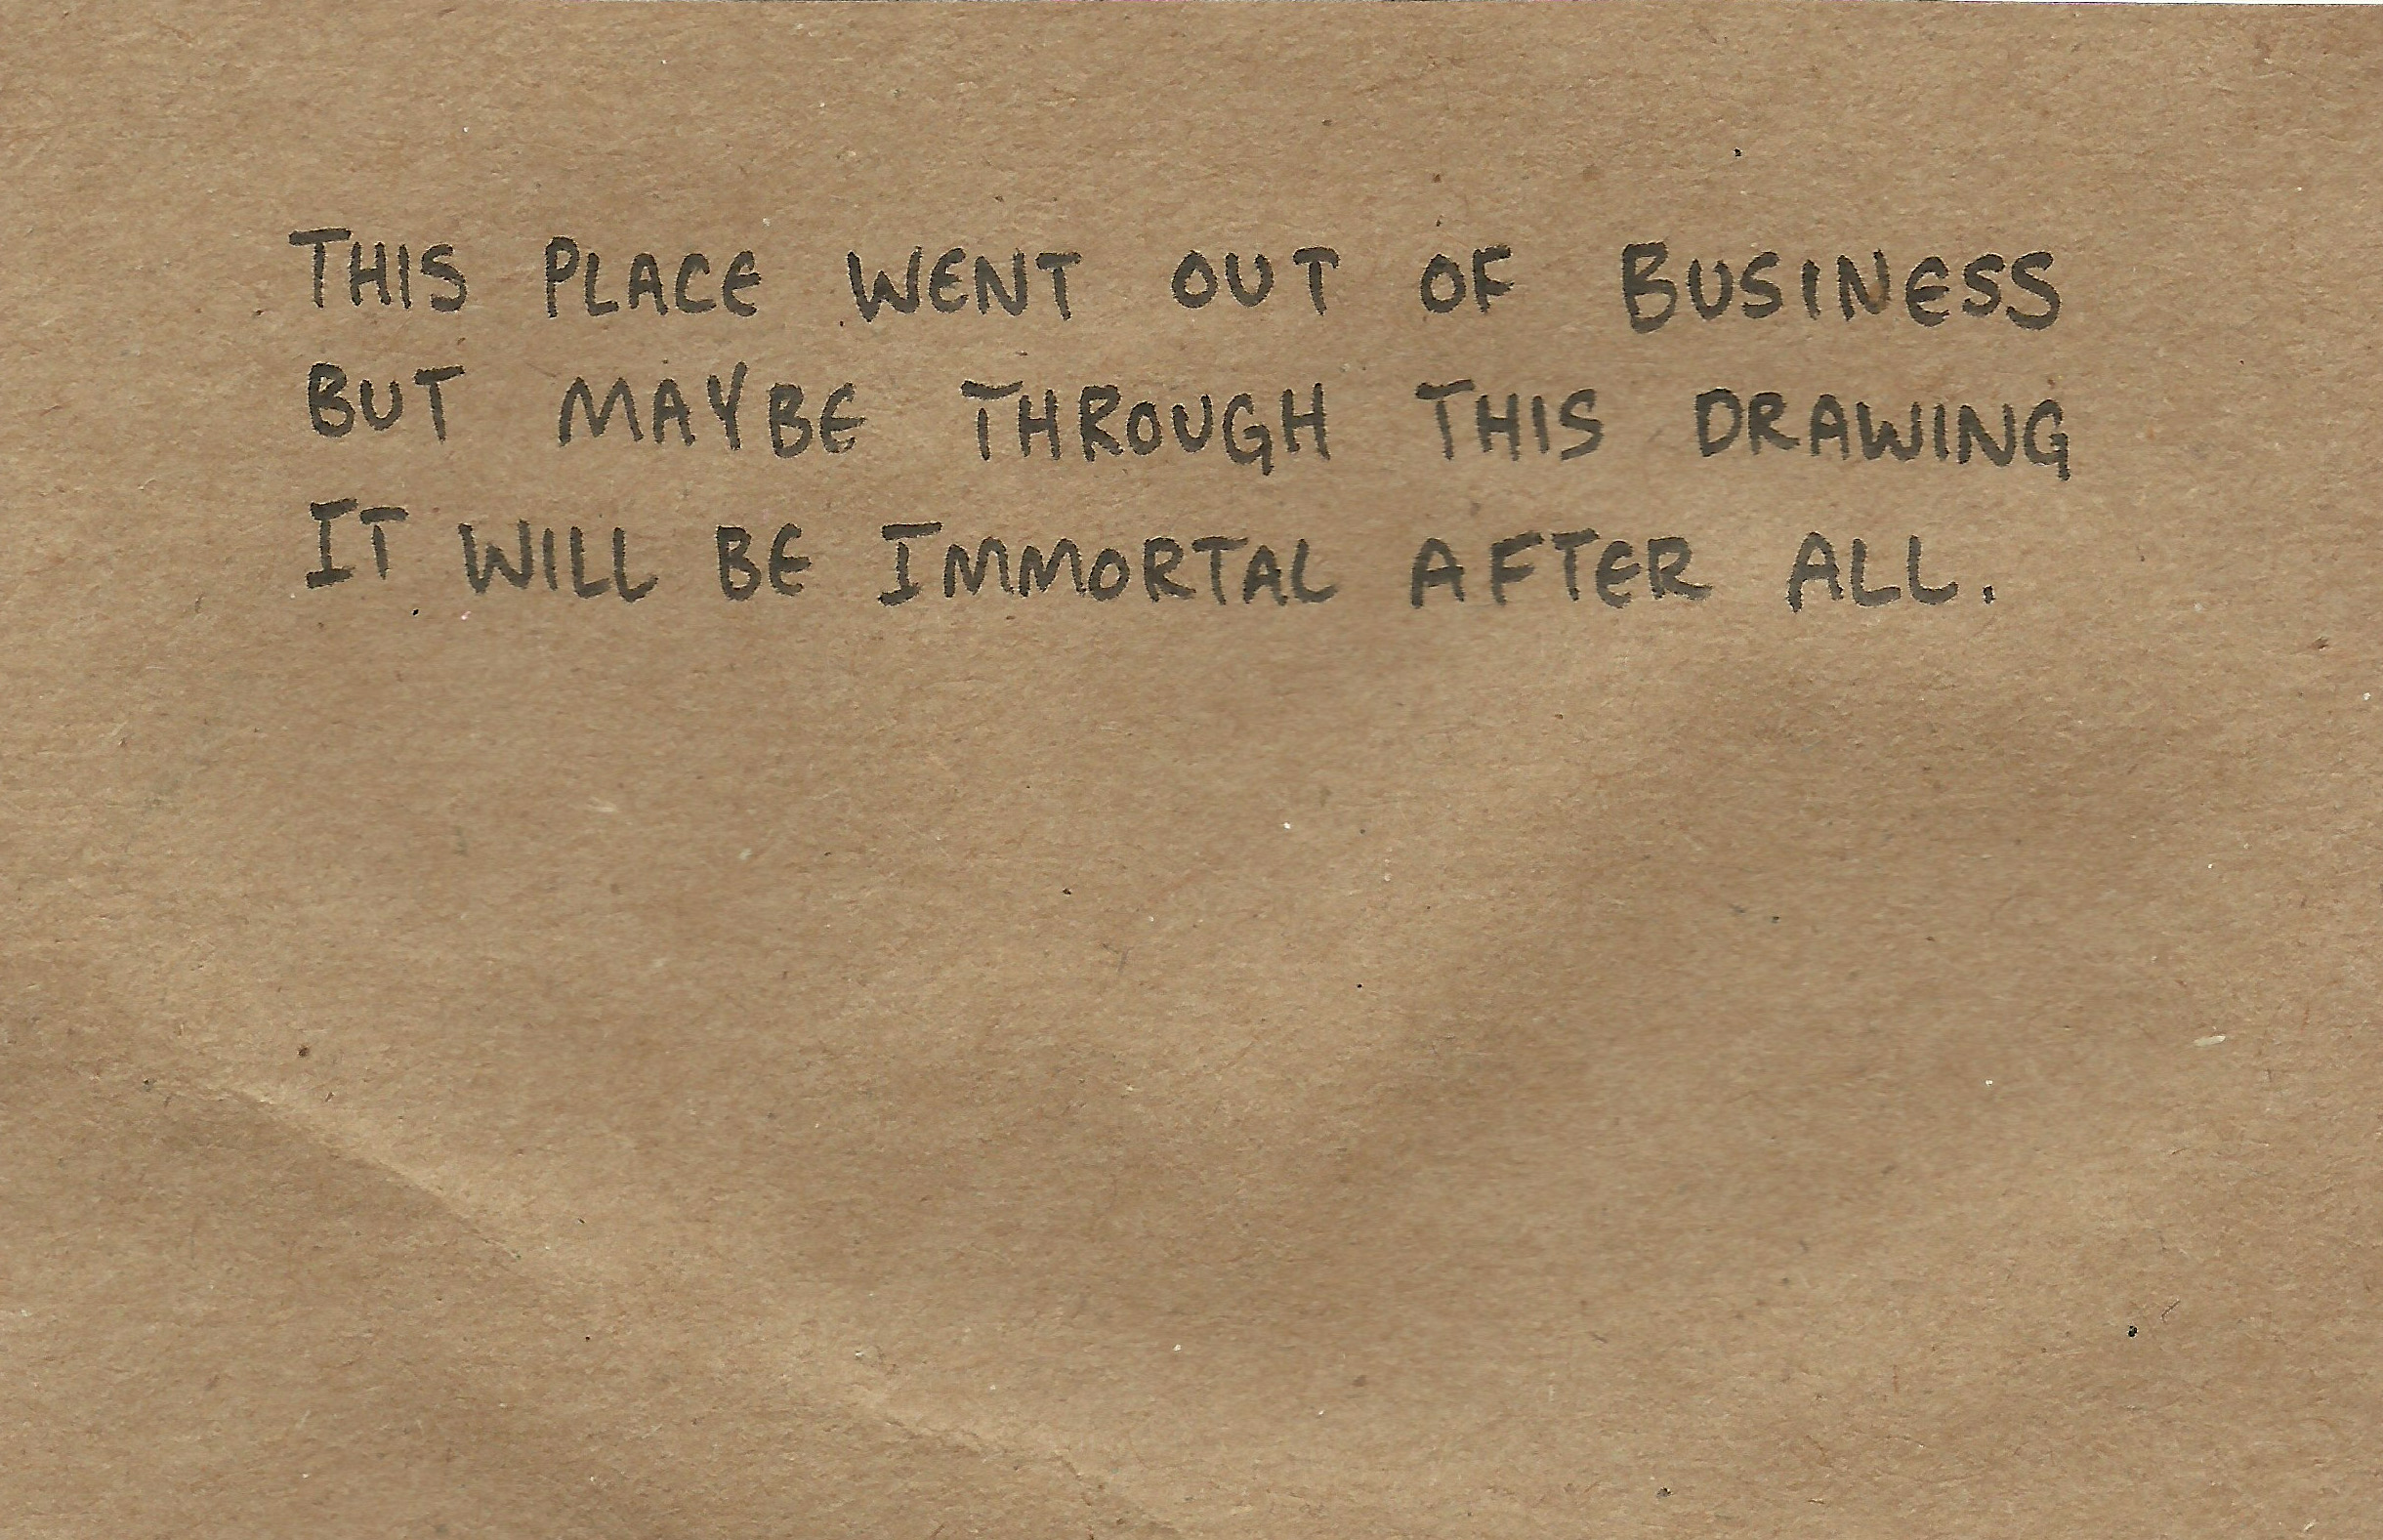 THIS PLACE WENT OUT OF BUSINESS
BUT MAYBE THROUGH THIS DRAWING
IT WILL BE IMMORTAL AFTER ALL.